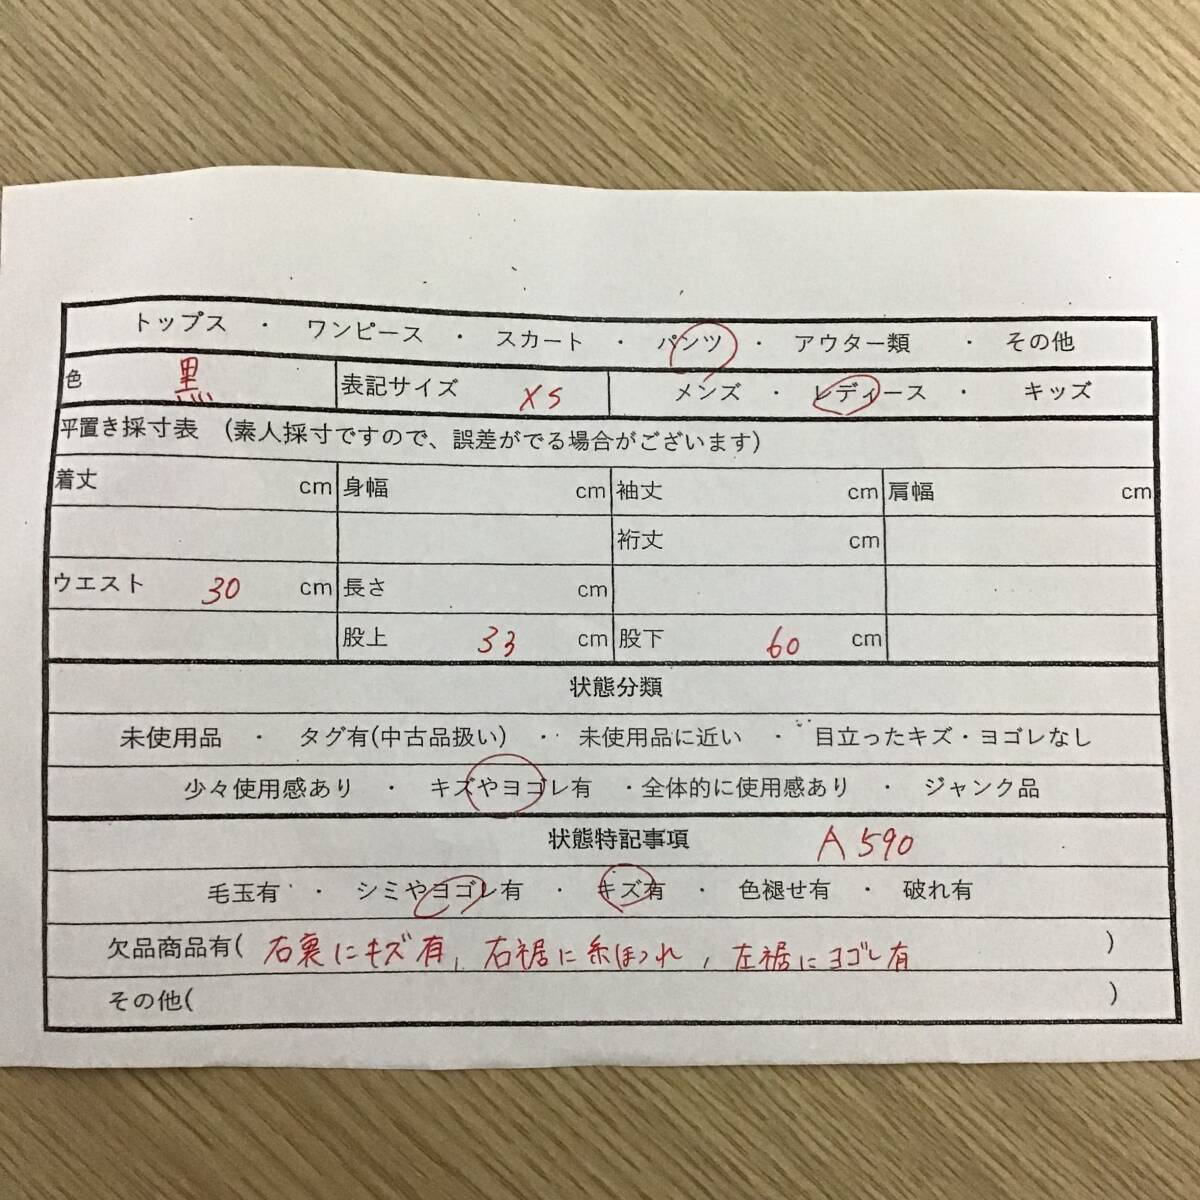 トップス ・ ワンピース ・ スカート ・ パンツ ・ アウター類 ・ その他
色 黒 表記サイズ XS メンズ ・ レディース ・ キッズ
平置き採寸表 (素人採寸ですので、誤差がでる場合がございます)
着丈 cm 身幅 cm 袖丈 cm 肩幅 cm
裄丈 cm
ウエスト 30 cm 長さ cm
股上 33 cm 股下 60 cm
状態分類
未使用品 ・ タグ有(中古品扱い) ・ 未使用品に近い ・ 目立ったキズ・ヨゴレなし
少々使用感あり ・ キズやヨゴレ有 ・全体的に使用感あり ・ ジャンク品
状態特記事項 A590
毛玉有 ・ シミやヨゴレ有 ・ キズ有 ・ 色褪せ有 ・ 破れ有
欠品商品有( 右裏にキズ有, 右裾に糸ほつれ, 左裾にヨゴレ有 )
その他( )